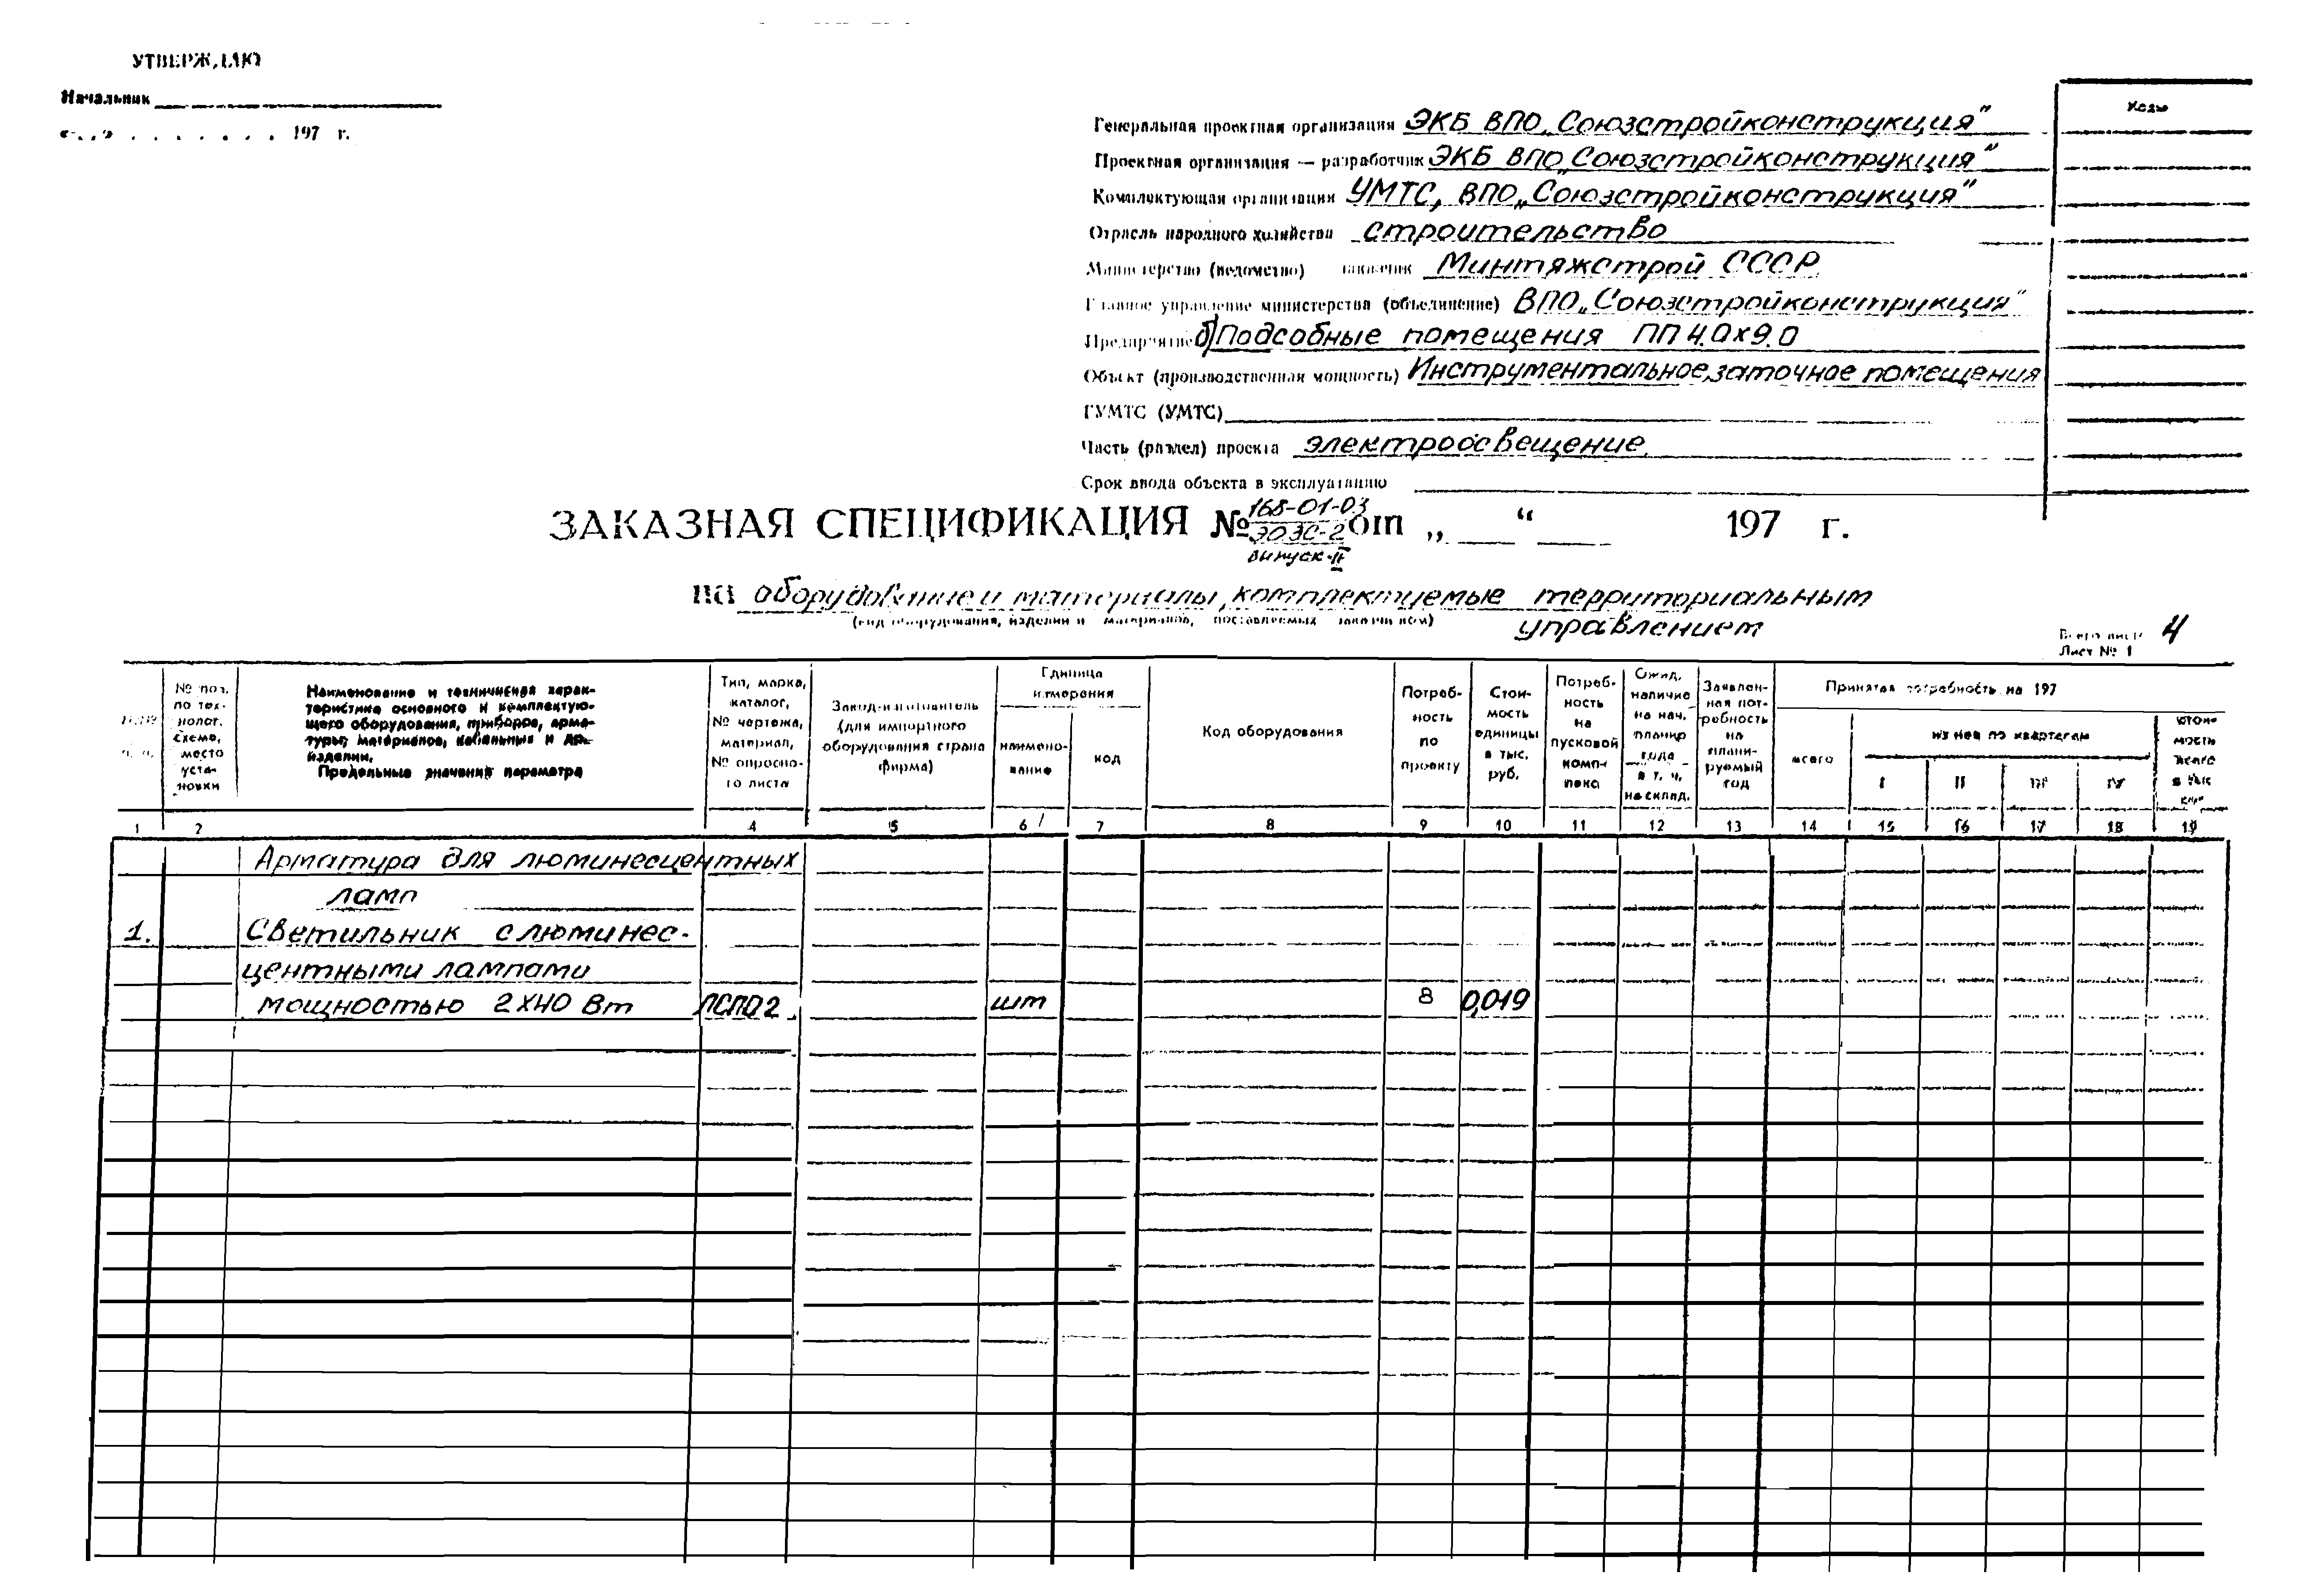 УТВЕРЖДАЮ
Начальник
197 г.
Коды
Генеральная проектная организация ЭКБ ВПО „Союзстройконструкция"
Проектная организация — разработчик ЭКБ ВПО „Союзстройконструкция"
Комплектующая организация УМТС, ВПО „Союзстройконструкция"
Отрасль народного хозяйства строительство
Министерство (ведомство) заказчик Минтяжстрой СССР
Главное управление министерства (объединение) ВПО „Союзстройконструкция"
Предприятие б) Подсобные помещения ПП 4.0х9.0
Объект (производственная мощность) Инструментальное, заточное помещения
ГУМТС (УМТС)
Часть (раздел) проекта электроосвещение
Срок ввода объекта в эксплуатацию
ЗАКАЗНАЯ СПЕЦИФИКАЦИЯ № 168-01-03 ЭОЗС-2 выпуск-II от „ “ 197 г.
на оборудование и материалы, комплектуемые территориальным
(вид оборудования, изделий и материалов, поставляемых заказчиком) управлением
Всего листов 4
Лист № 1
№ поз. по технолог. схеме, место установки
Наименование и техническая характеристика основного и комплектующего оборудования, приборов, арматуры, материалов, кабельных и др. изделий. Предельные значения параметра
Тип, марка, каталог, № чертежа, материал, № опросного листа
Завод-изготовитель (для импортного оборудования страна фирма)
Единица измерения
наименование
код
Код оборудования
Потребность по проекту
Стоимость единицы в тыс. руб.
Потребность на пусковой комплекс
Ожид. наличие на нач. планир года в т. ч. на склад.
Заявленная потребность на планируемый год
Принятая потребность на 197
всего
из нее по кварталам
I II III IV
стоимость всего в тыс руб
1 2 4 5 6 7 8 9 10 11 12 13 14 15 16 17 18 19
Арматура для люминесцентных
ламп
1. Светильник с люминес-
центными лампами
мощностью 2х40 Вт ЛСП02 шт 8 0,019